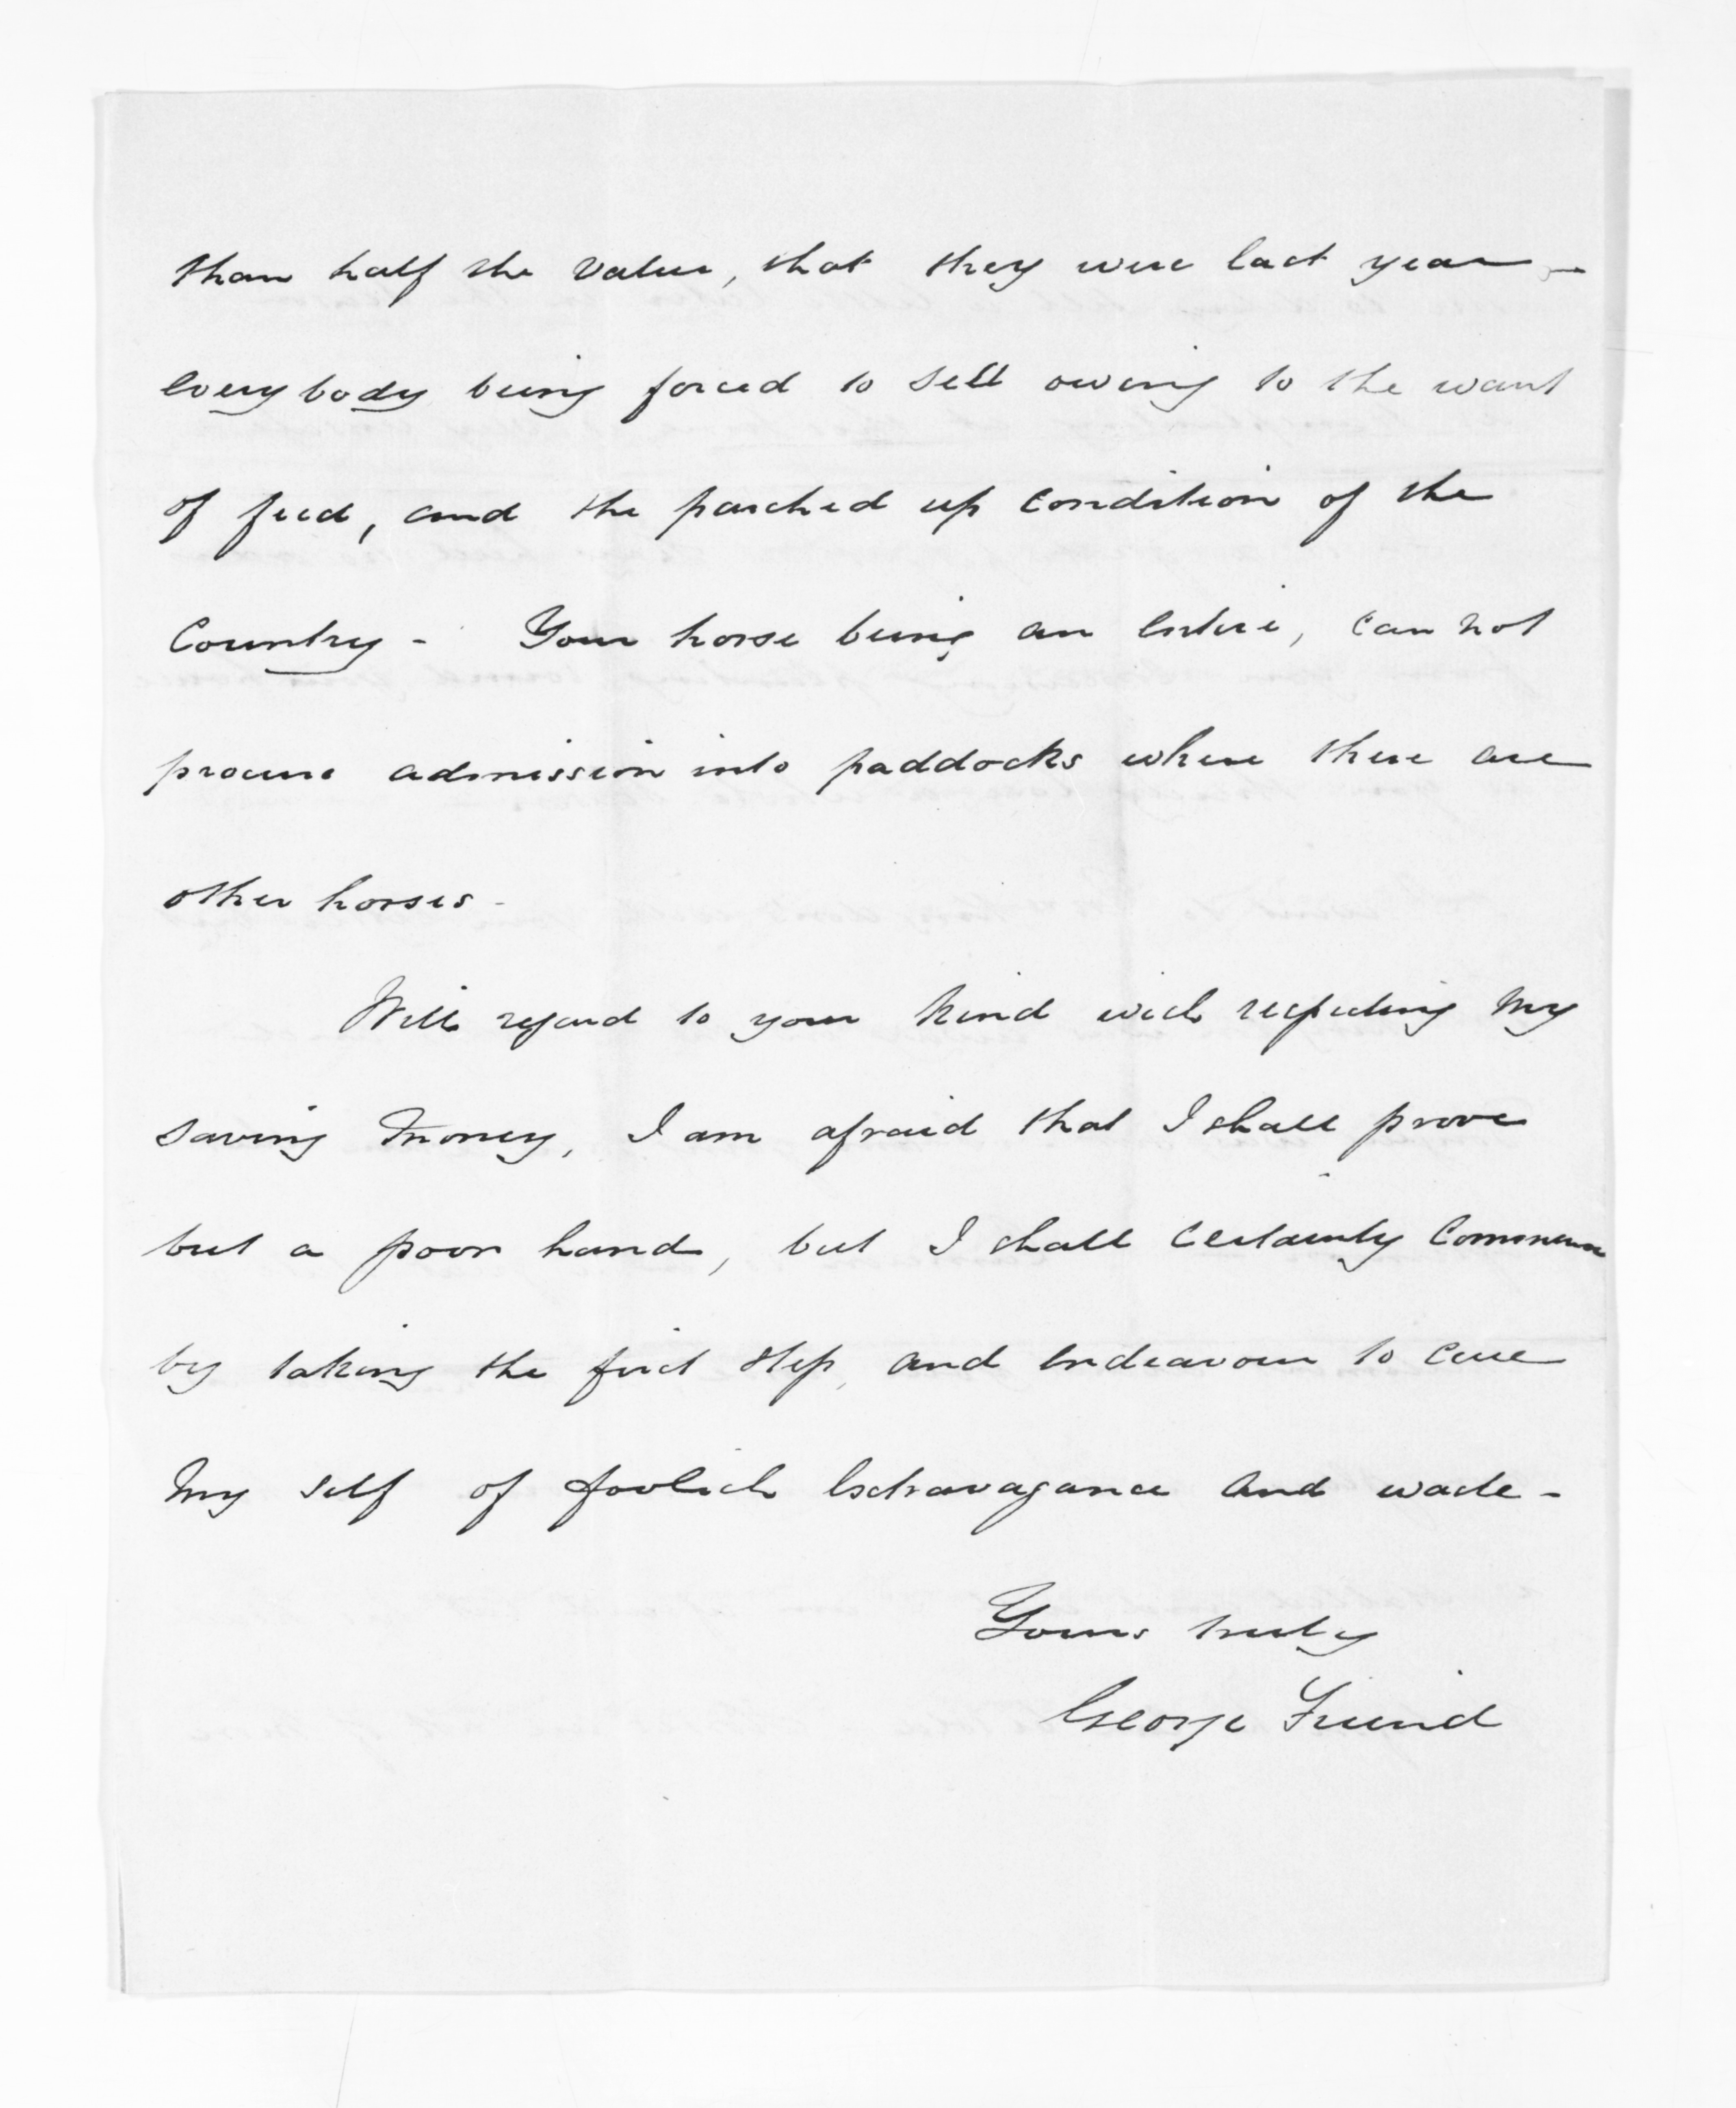 than half the value, that they were last year -
every body being forced to sell owing to the want
of feed, and the parched up condition of the
Country - Your horse being an entire, can not
procure admission into paddocks where there are
other horses -
With regard to your kind wish respecting my
saving money, I am afraid that I shall prove
but a poor hand, but I shall certainly commence
by taking the first step, and endeavour to cure
my self of foolish extravagance and waste -
Yours truly
George Friend